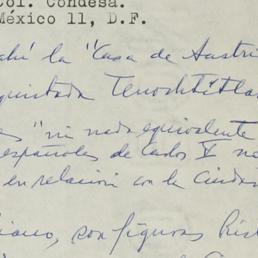 Col. Condesa.
México 11, D.F.
ahí la "Casa de Austri
quistada Tenochtitla
es" ni nada equivalente
españoles de Carlos V no
en relación con la ciuda
iano, son figuras hist